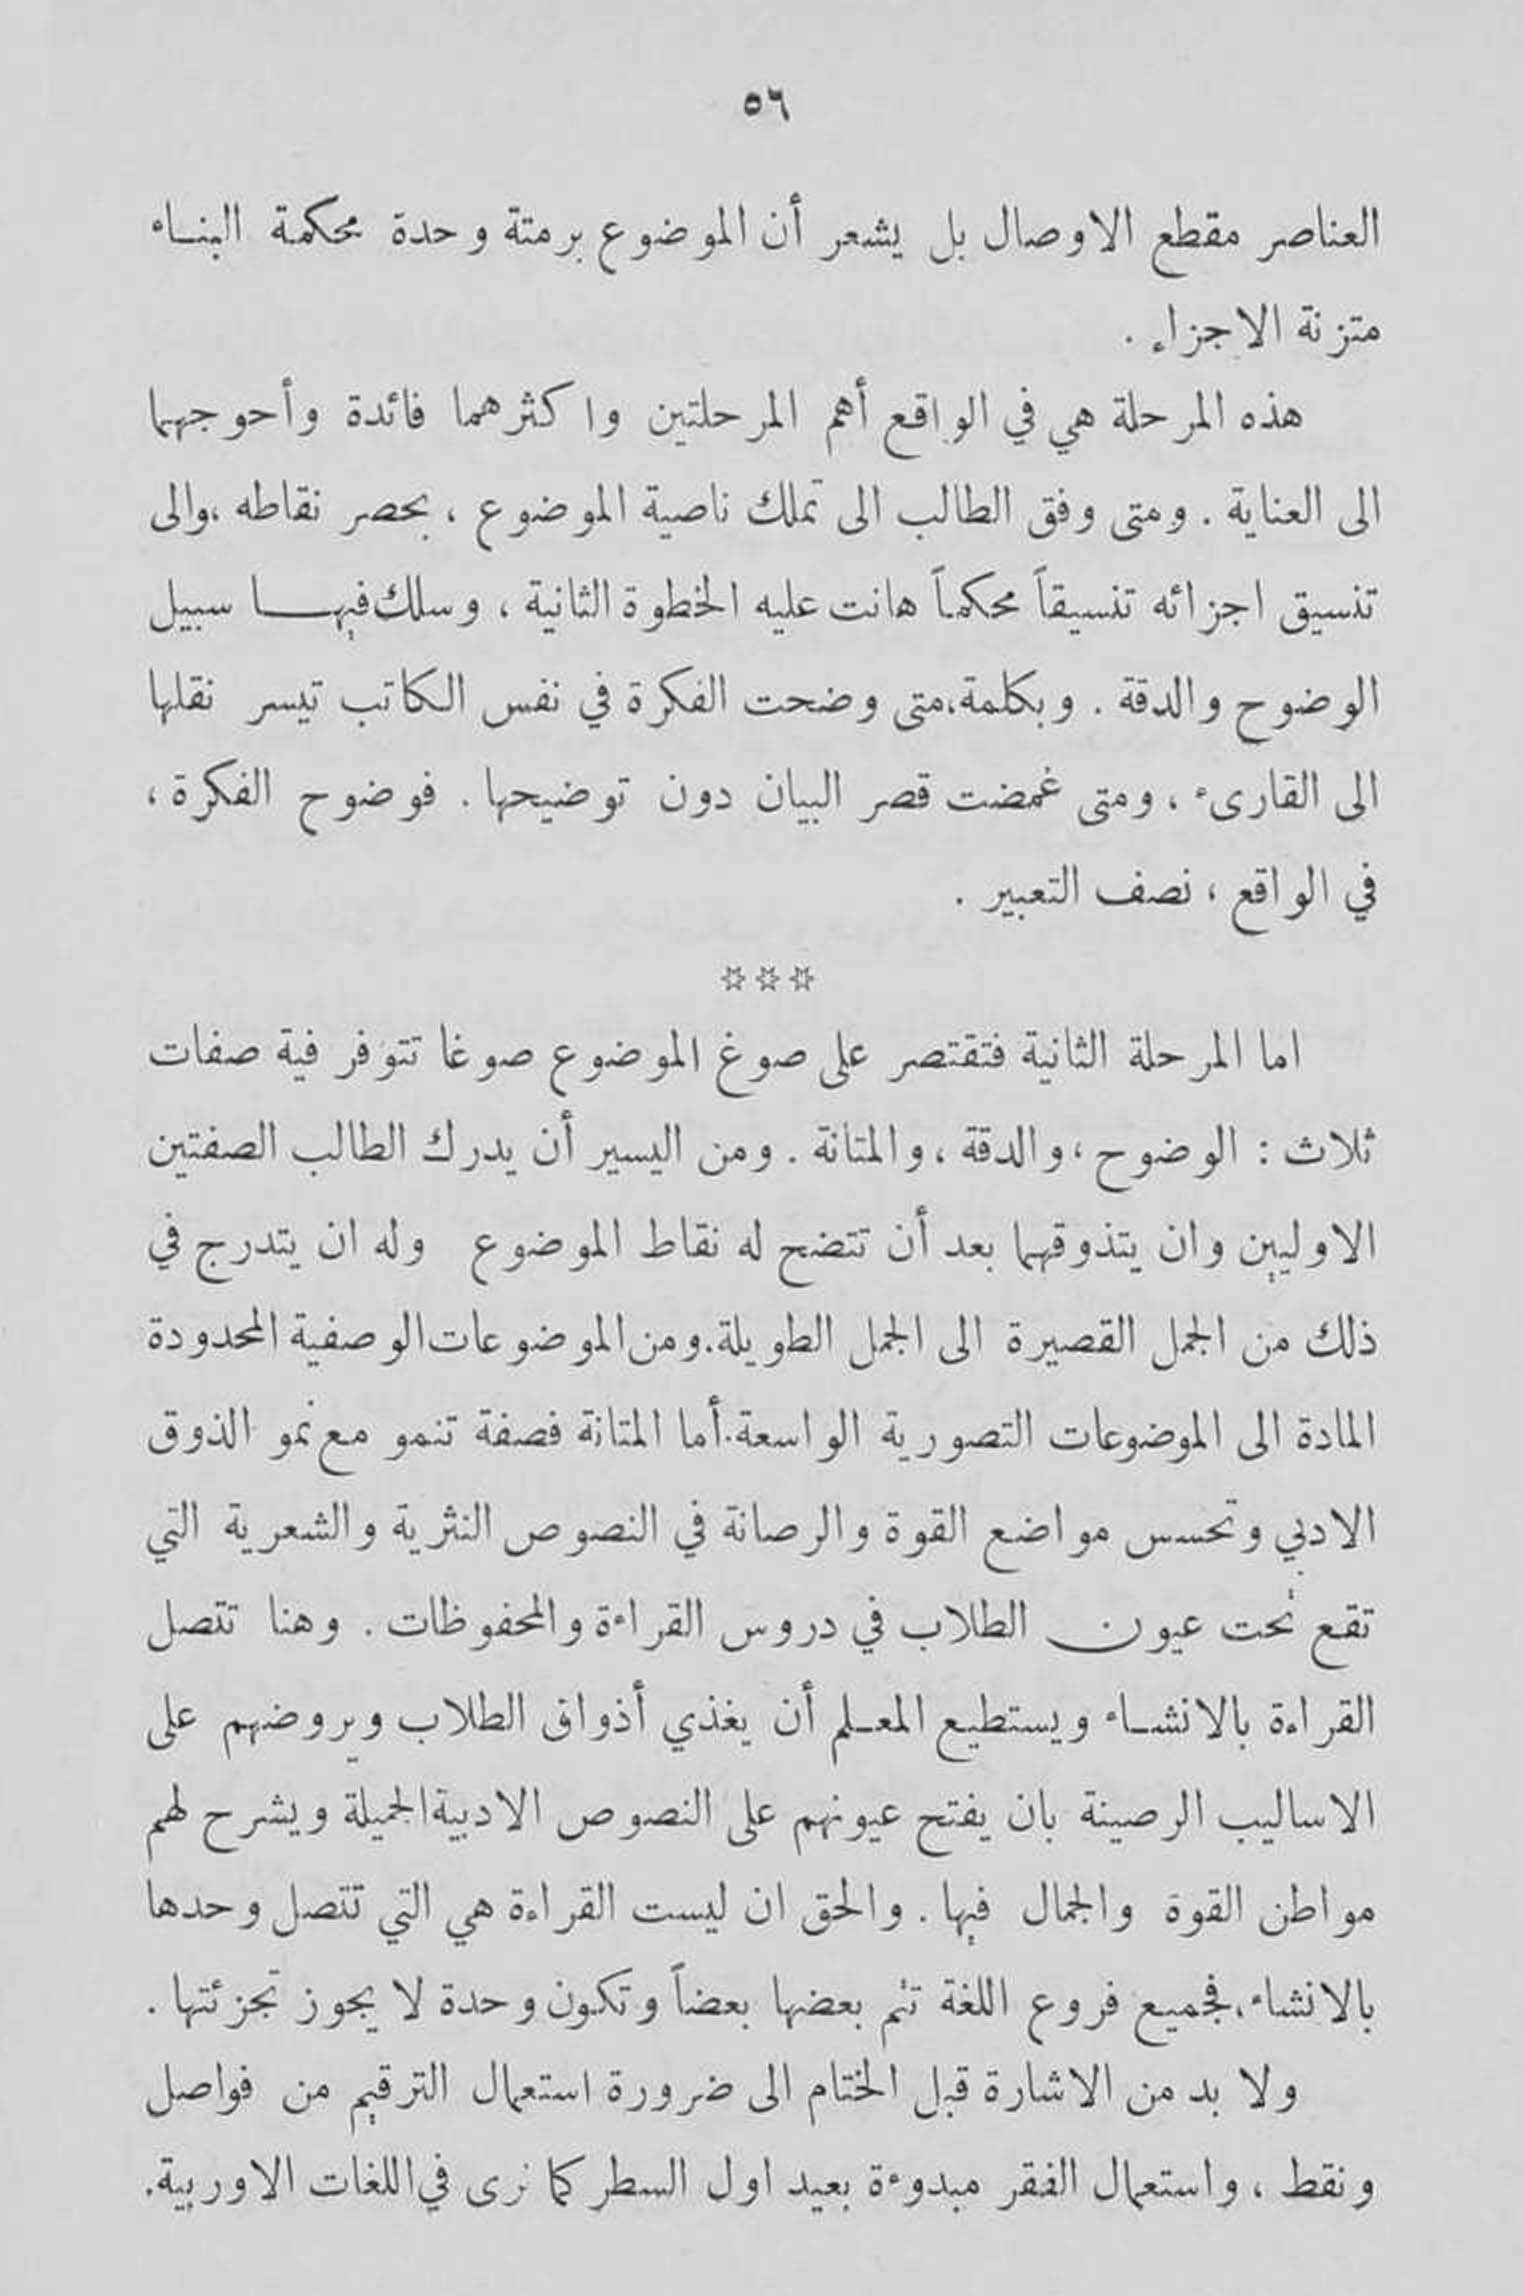 ٥٦
العناصر مقطع الاوصال بل يشعر أن الموضوع برمتة وحدة محكمة البناء
متزنة الاجزاء .
هذه المرحلة هي في الواقع أهم المرحلتين واكثرهما فائدة وأحوجهما
الى العناية . ومتى وفق الطالب الى تملك ناصية الموضوع ، بحصر نقاطه ،والى
تنسيق اجزائه تنسيقاً محكماً هانت عليه الخطوة الثانية ، وسلك فيها سبيل
الوضوح والدقة . وبكلمة،متى وضحت الفكرة في نفس الكاتب تيسر نقلها
الى القارىء ، ومتى غمضت قصر البيان دون توضيحها . فوضوح الفكرة ،
في الواقع ، نصف التعبير .
☆☆☆
اما المرحلة الثانية فتقتصر على صوغ الموضوع صوغا تتوفر فية صفات
ثلاث : الوضوح ، والدقة ، والمتانة . ومن اليسير أن يدرك الطالب الصفتين
الاوليين وان يتذوقهما بعد أن تتضح له نقاط الموضوع وله ان يتدرج في
ذلك من الجمل القصيرة الى الجمل الطويلة.ومن الموضوعات الوصفية المحدودة
المادة الى الموضوعات التصورية الواسعة.أما المتانة فصفة تنمو مع نمو الذوق
الادبي وتحسس مواضع القوة والرصانة في النصوص النثرية والشعرية التي
تقع تحت عيون الطلاب في دروس القراءة والمحفوظات . وهنا تتصل
القراءة بالانشاء ويستطيع المعلم أن يغذي أذواق الطلاب ويروضهم على
الاساليب الرصينة بان يفتح عيونهم على النصوص الادبية الجميلة ويشرح لهم
مواطن القوة والجمال فيها . والحق ان ليست القراءة هي التي تتصل وحدها
بالانشاء ،فجميع فروع اللغة تتم بعضها بعضاً وتكون وحدة لا يجوز تجزئتها .
ولا بد من الاشارة قبل الختام الى ضرورة استعمال الترقيم من فواصل
ونقط ، واستعمال الفقر مبدوءة بعيد اول السطر كما نرى في اللغات الاوربية.